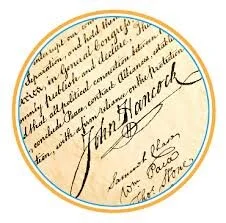 interrupt our con
separation, and hold the
in General Congress
publish and declare, That
that all political connection between
conclude Peace, contract Alliances, establish
tion, with a firm reliance on the protection
John Hancock
Samuel Chase
Wm Paca
Thos Stone